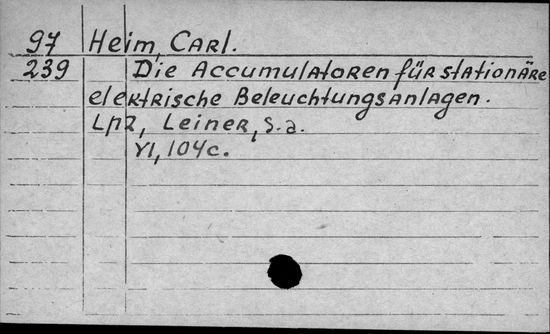 97 Heim, Carl.
239 Die Accumulatoren für stationäre
elektrische Beleuchtungsanlagen.
Lpz, Leiner, s.a.
VI, 104c.